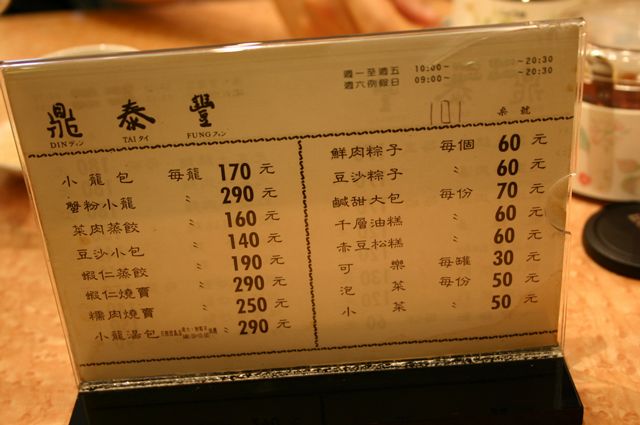 鼎 泰 豐
DINディン TAIタイ FUNGフォン
週一至週五 10:00~ ~20:30
週六例假日 09:00~ ~20:30
101 桌號
小籠包 每籠 170元
蟹粉小籠 〃 290元
菜肉蒸餃 〃 160元
豆沙小包 〃 140元
蝦仁蒸餃 〃 190元
蝦仁燒賣 〃 290元
糯肉燒賣 〃 250元
小籠湯包 〃 290元
鮮肉粽子 每個 60元
豆沙粽子 〃 60元
鹹甜大包 每份 70元
千層油糕 〃 60元
赤豆松糕 〃 60元
可樂 每罐 30元
泡菜 每份 50元
小菜 〃 50元